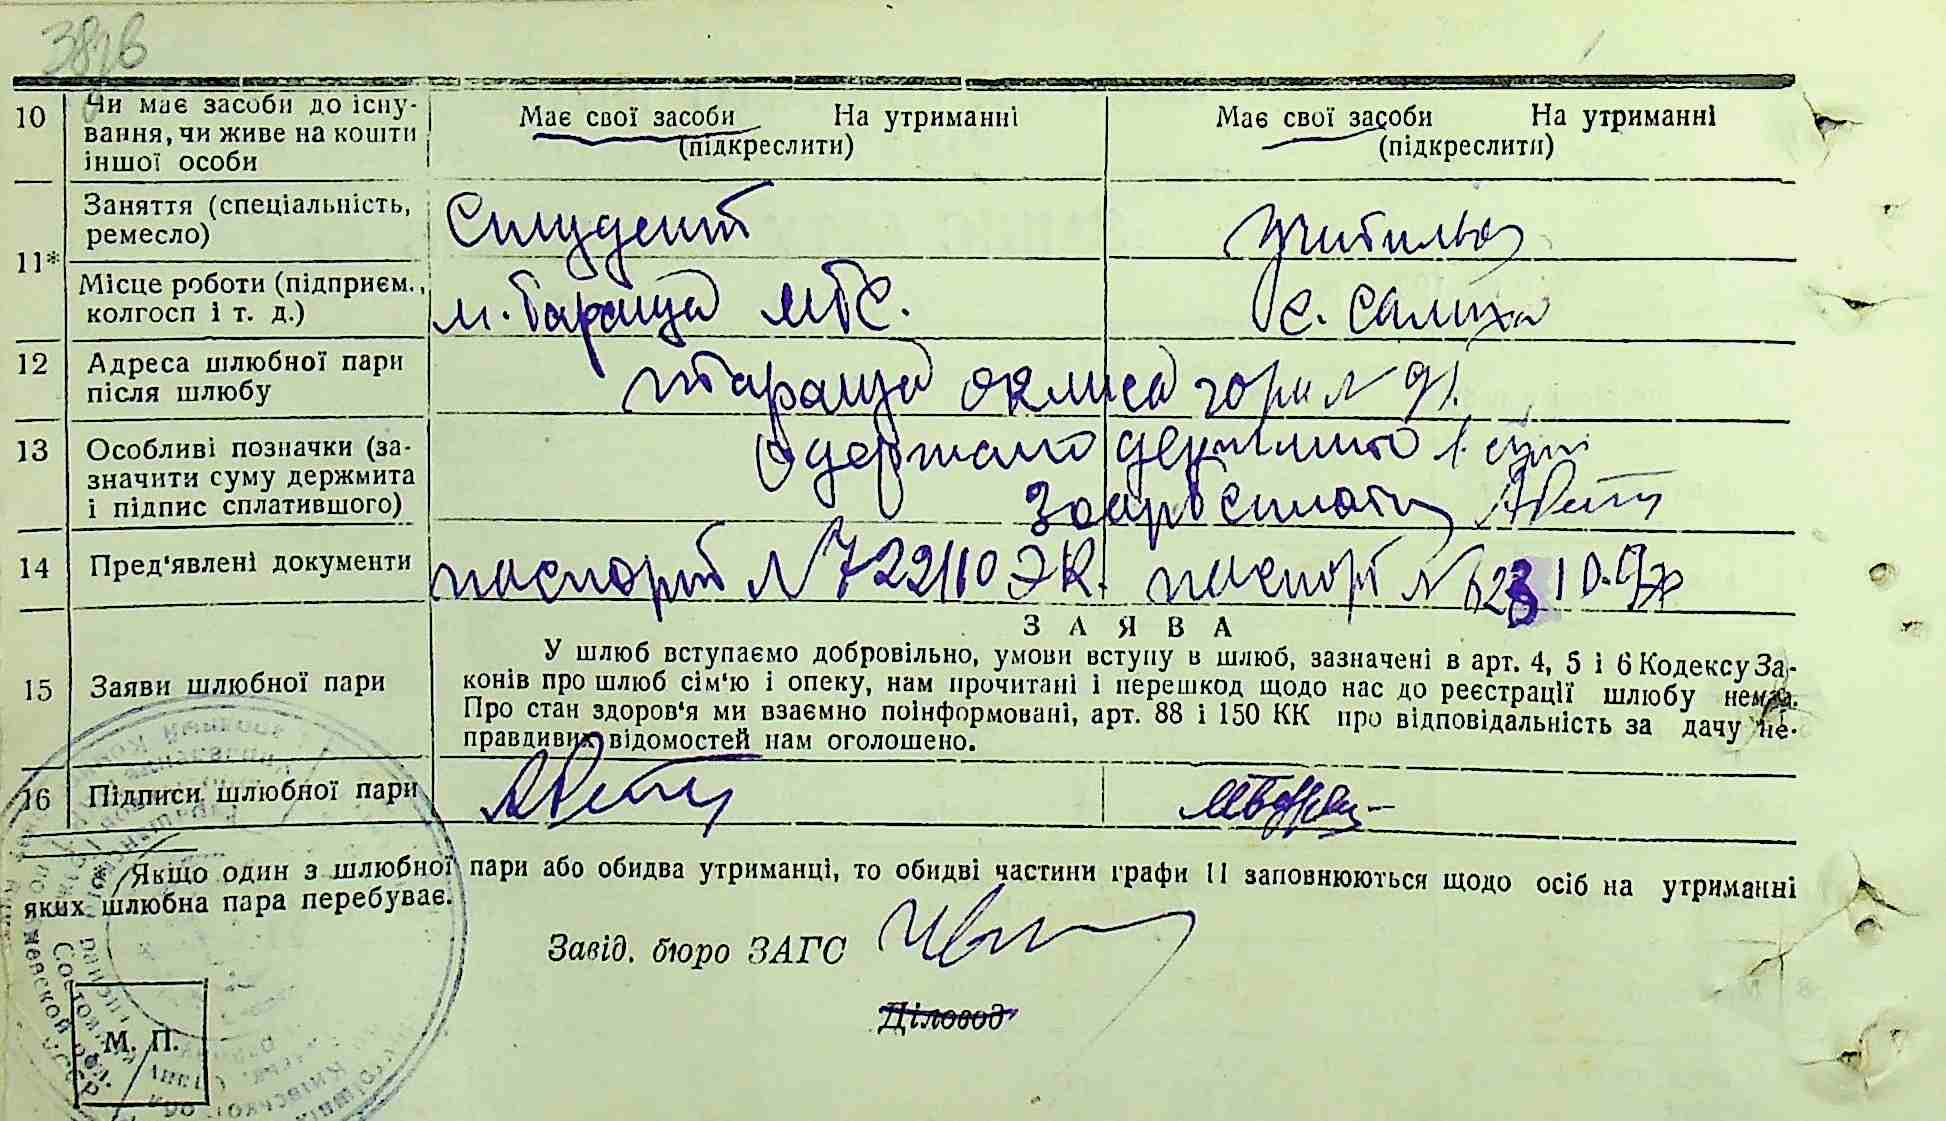 10 Чи має засоби до існу-
вання, чи живе на кошти
іншої особи
Має свої засоби На утриманні
(підкреслити)
Має свої засоби На утриманні
(підкреслити)
11* Заняття (спеціальність,
ремесло)
Студент
Учитель
Місце роботи (підприєм.,
колгосп і т. д.)
м. Тараща МТС.
с. Салиха
12 Адреса шлюбної пари
після шлюбу
Тараща гора N 91.
13 Особливі позначки (за-
значити суму держмита
і підпис сплатившого)
Одержано держмито
14 Пред'явлені документи
паспорт N 722110 ЭК.
паспорт N
З А Я В А
15 Заяви шлюбної пари
У шлюб вступаємо добровільно, умови вступу в шлюб, зазначені в арт. 4, 5 і 6 Кодексу За-
конів про шлюб сім'ю і опеку, нам прочитані і перешкод щодо нас до реєстрації шлюбу немає.
Про стан здоров'я ми взаємно поінформовані, арт. 88 і 150 КК про відповідальність за дачу не-
правдивих відомостей нам оголошено.
16 Підписи шлюбної пари
* Якщо один з шлюбної пари або обидва утриманці, то обидві частини графи 11 заповнюються щодо осіб на утриманні
яких шлюбна пара перебуває.
Завід. бюро ЗАГС
Діловод
М. П.